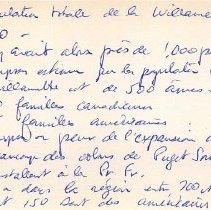 ulation totale de la Willame
0 -
y avait alors près de 1,000 p
estime par les populat
Willamette et de 500 âmes
familles canadiennes
familles américaines
peur de l'expansion a
des colons de Puget Sou
installent à la Pr. Fr.
dans la région entre 700
et 150 sont des américain